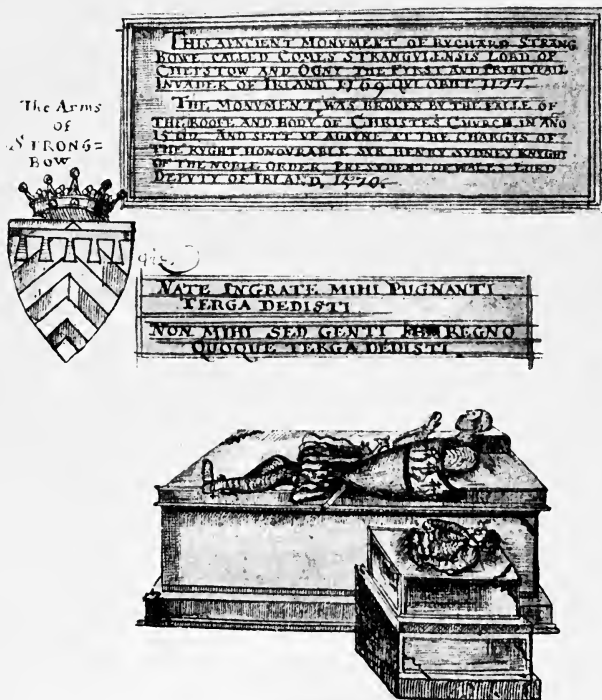 THIS AVNCIENT MONVMENT OF RYCHARD STRANG
BOWE CALLED COMES STRANGVLENSIS LORD OF
CHEPSTOW AND OGNY THE FYRST AND PRYNCYPALL
INVADER OF IRLAND 1169. QVI OBIIT 1177.
THE MONVMENT WAS BROKEN BY THE FALLE OF
THE ROOFE AND BODY OF CHRISTES CHVRCH IN ANO
AND SETT VP AGAYNE AT THE CHARGYS OF
THE RYGHT HONOVRABLE SYR HENRY SYDNEY KNYGHT
OF THE NOBLE ORDER PRESYDENT DE WALES LORD
DEPVTY OF IRLAND, 1570.
The Arms
of
STRONG=
BOW
NATE INGRATE MIHI PUGNANTI
TERGA DEDISTI
NON MIHI SED GENTI REGNO
QUOQUE TERGA DEDISTI